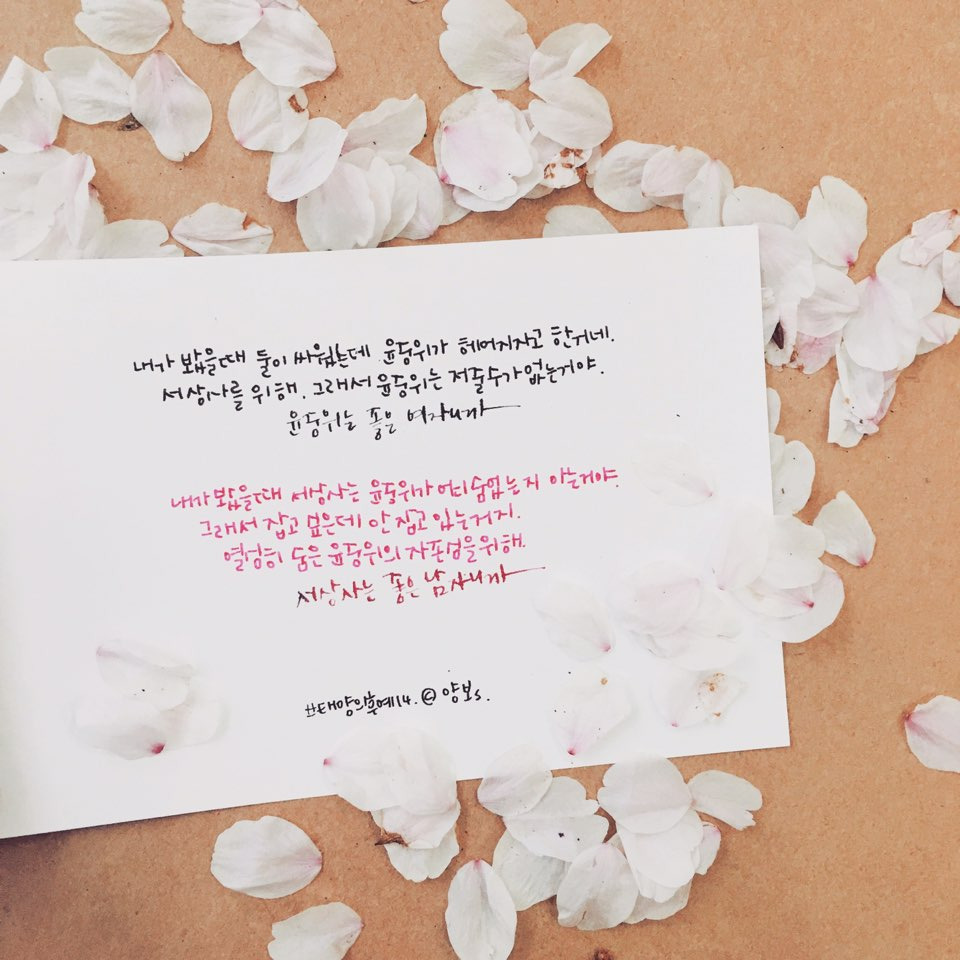 내가 봤을때 둘이 싸웠는데 윤중위가 헤어지자고 한거네.
서상사를 위해. 그래서 윤중위는 져줄수가 없는거야.
윤중위는 좋은 여자니까
내가 봤을때 서상사는 윤중위가 어디 숨었는지 아는거야.
그래서 잡고 싶은데 안 잡고 있는거지.
열심히 숨은 윤중위의 자존심을 위해.
서상사는 좋은 남자니까
#태양의후예14. © 양보s.